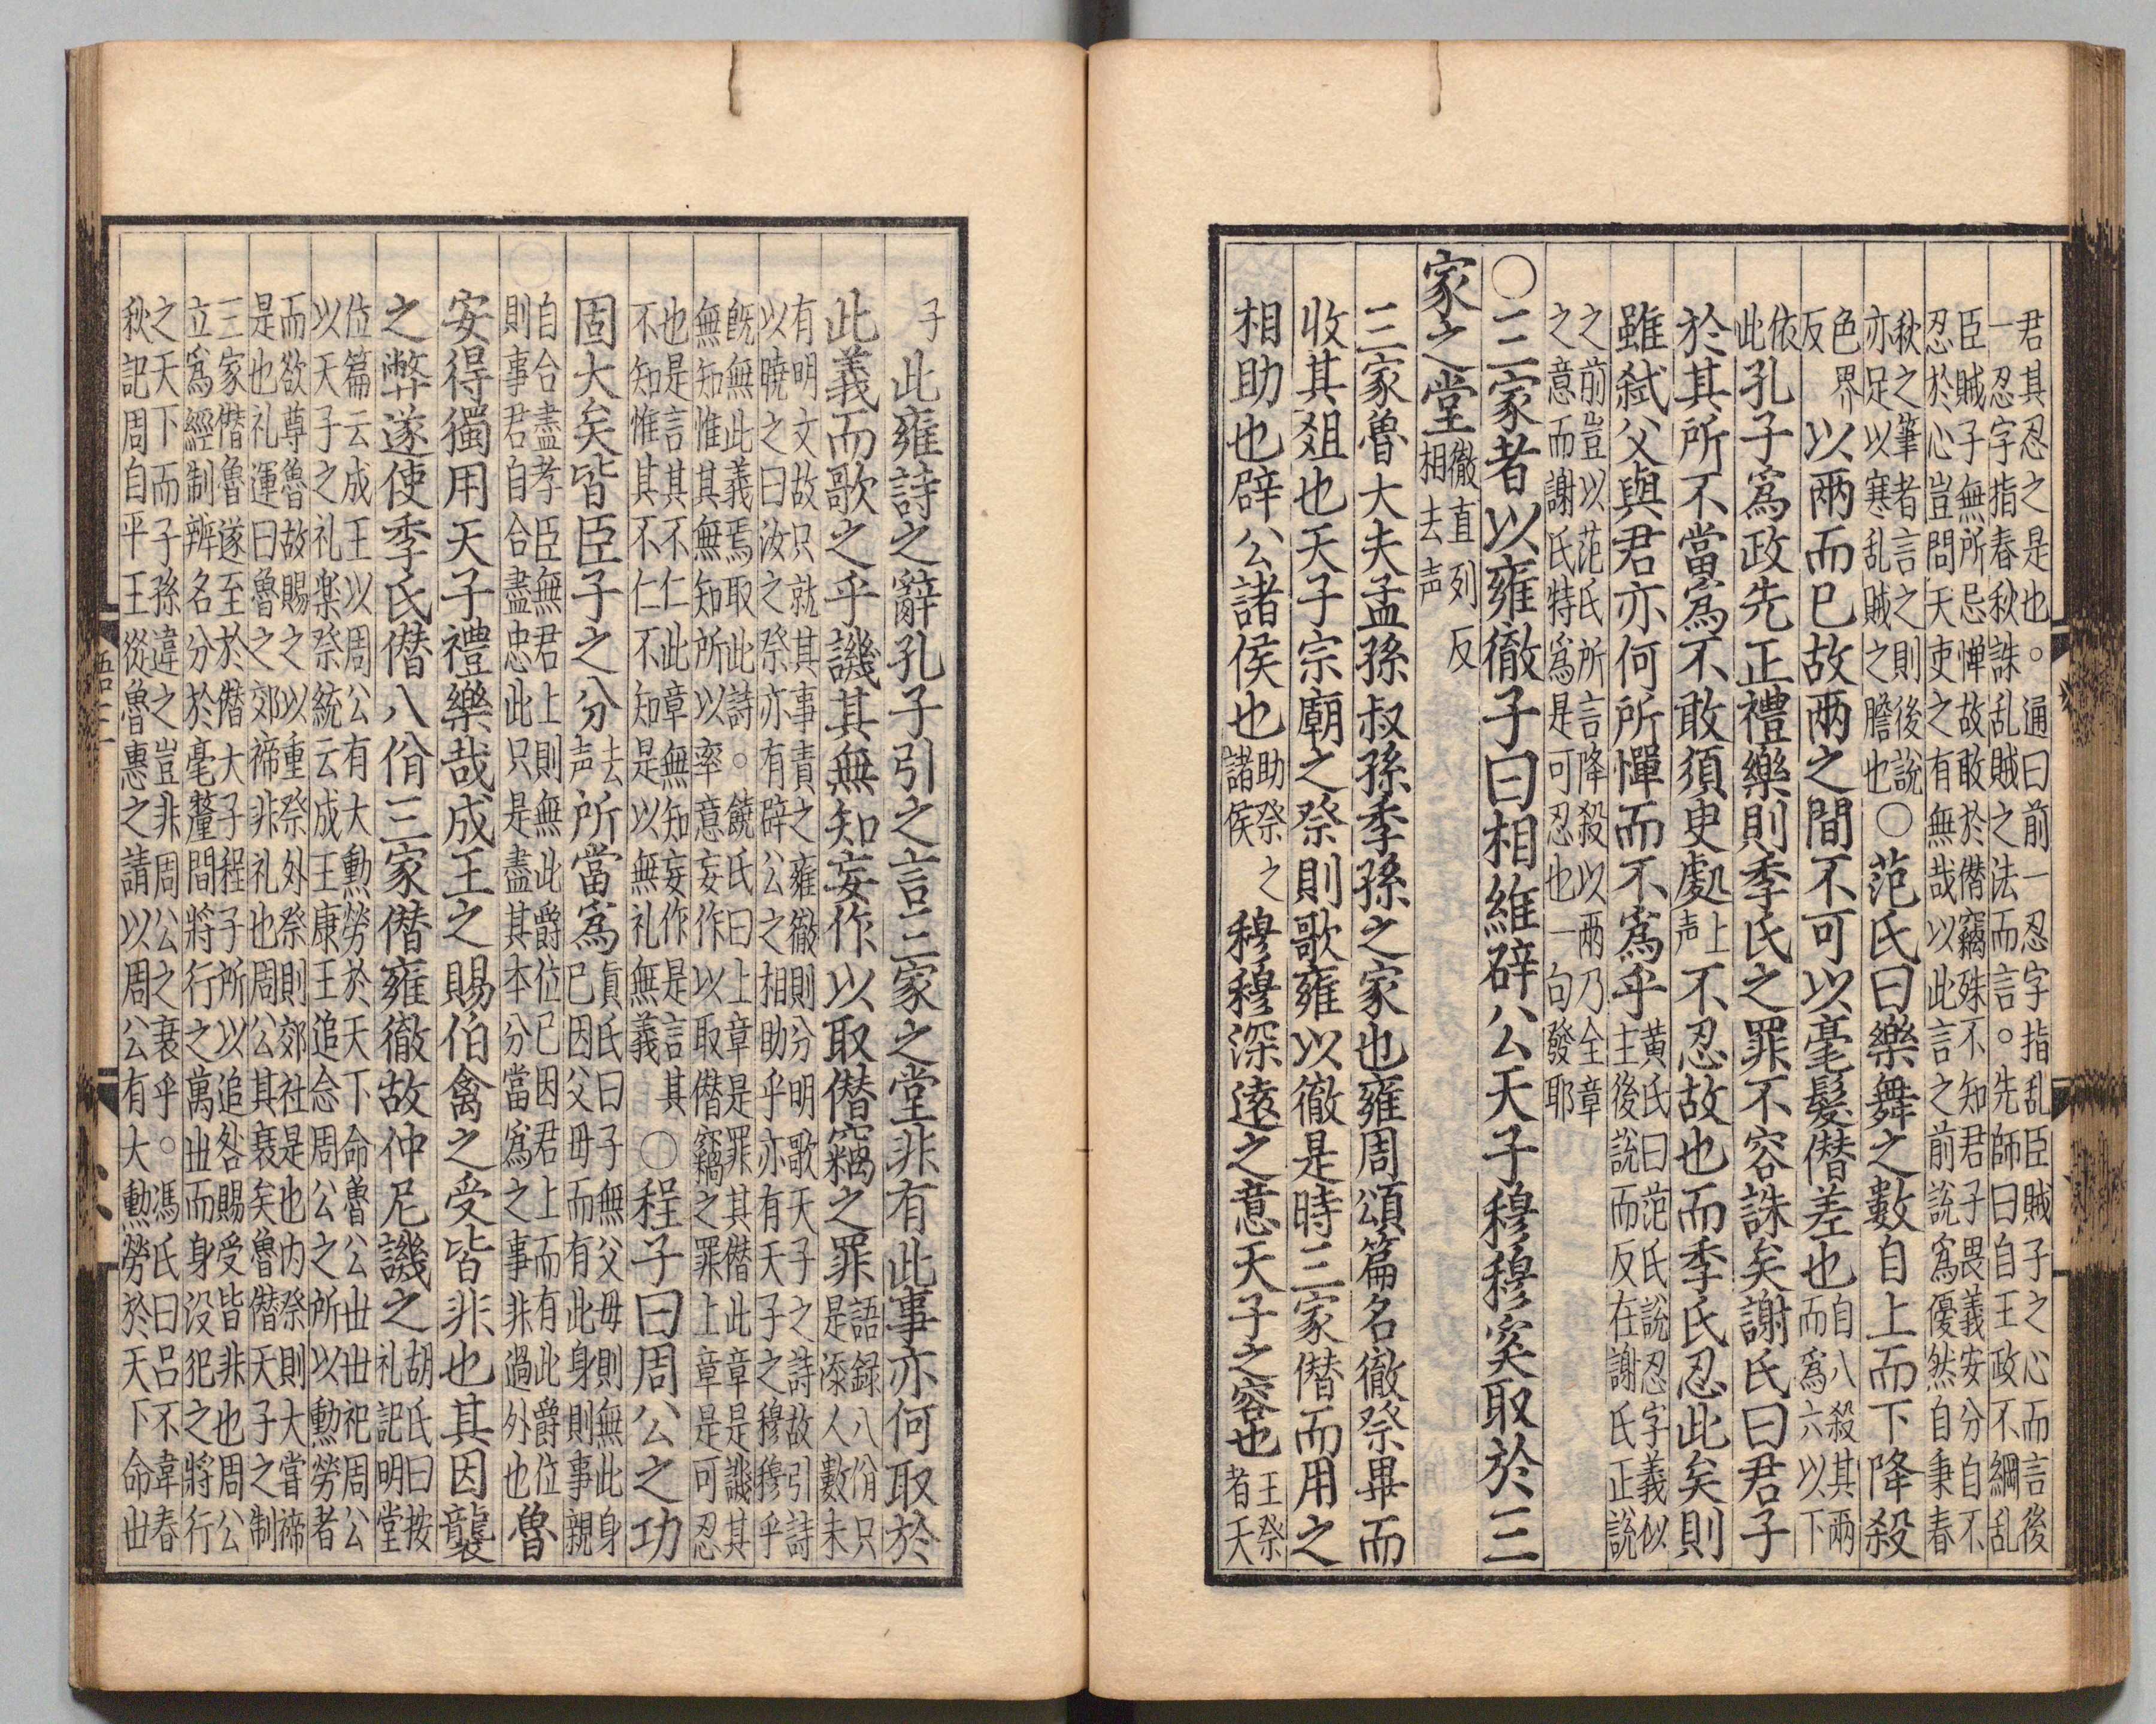 君其忍之是也。通曰前一忍字指乱臣賊子之心而言後
一忍字指春秋誅乱賊之法而言。先師曰自王政不綱乱
臣賊子無所忌憚故敢於僭竊殊不知君子畏義安分自不
忍於心豈問天吏之有無哉以此言之前說爲優然自秉春
秋之筆者言之則後說
亦足以寒乱賊之膽也〇范氏曰樂舞之數自上而下降殺
色界
反以兩而已故兩之間不可以毫髮僭差也自八殺其兩
而爲六以下
依
此孔子爲政先正禮樂則季氏之罪不容誅矣謝氏曰君子
於其所不當爲不敢須臾處上声不忍故也而季氏忍此矣則
雖弑父與君亦何所憚而不爲乎黄氏曰范氏說忍字義似
主後說而反在謝氏正說
之前豈以范氏所言降殺以兩乃全章
之意而謝氏特爲是可忍也一句發耶
〇三家者以雍徹子曰相維辟公天子穆穆奚取於三
家之堂徹直列反
相去声
三家魯大夫孟孫叔孫季孫之家也雍周頌篇名徹祭畢而
收其俎也天子宗廟之祭則歌雍以徹是時三家僭而用之
相助也辟公諸侯也助祭之
諸侯穆穆深遠之意天子之容也王祭
者天
子此雍詩之辭孔子引之言三家之堂非有此事亦何取於
此義而歌之乎譏其無知妄作以取僭竊之罪語録八佾只
是添人數未
有明文故只就其事責之雍徹則分明歌天子之詩故引詩
以曉之曰汝之祭亦有辟公之相助乎亦有天子之穆穆乎
既無此義焉取此詩。饒氏曰上章是罪其僭此章是譏其
無知惟其無知所以率意妄作以取僭竊之罪上章是可忍
也是言其不仁此章無知妄作是言其
不知惟其不仁不知是以無礼無義〇程子曰周公之功
固大矣皆臣子之分去声所當爲眞氏曰子無父母則無此身
已因父母而有此身則事親
自合盡孝臣無君上則無此爵位已因君上而有此爵位
則事君自合盡忠此只是盡其本分當爲之事非過外也魯
安得獨用天子禮樂哉成王之賜伯禽之受皆非也其因襲
之弊遂使季氏僭八佾三家僭雍徹故仲尼譏之胡氏曰按
礼記明堂
位篇云成王以周公有大勳勞於天下命魯公世世祀周公
以天子之礼楽祭統云成王康王追念周公之所以勳勞者
而欲尊魯故賜之以重祭外祭則郊社是也内祭則大嘗禘
是也礼運曰魯之郊禘非礼也周公其衰矣魯僭天子之制
三家僭魯遂至於僭大子程子所以追咎賜受皆非也周公
立爲經制辨名分於毫釐間將行之萬世而身没犯之將行
之天下而子孫違之豈非周公之衰乎。馮氏曰呂不韋春
秋記周自平王從魯惠之請以周公有大勳勞於天下命世